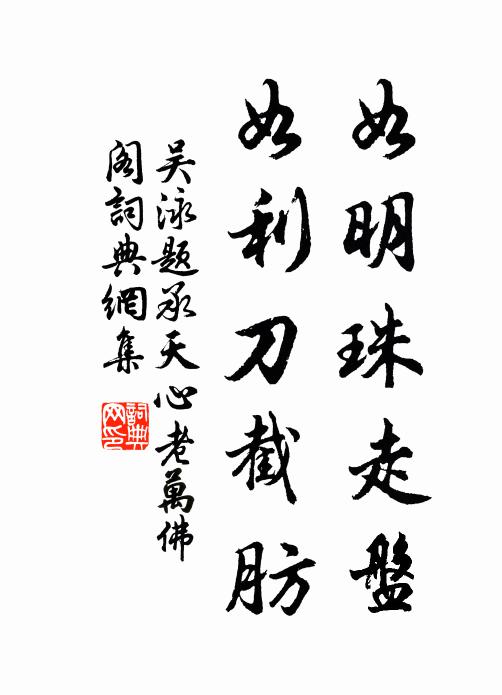 如明珠走盤
如利刀截肪
吳泳題承天心老萬佛
閣詞典網集
詞典网印